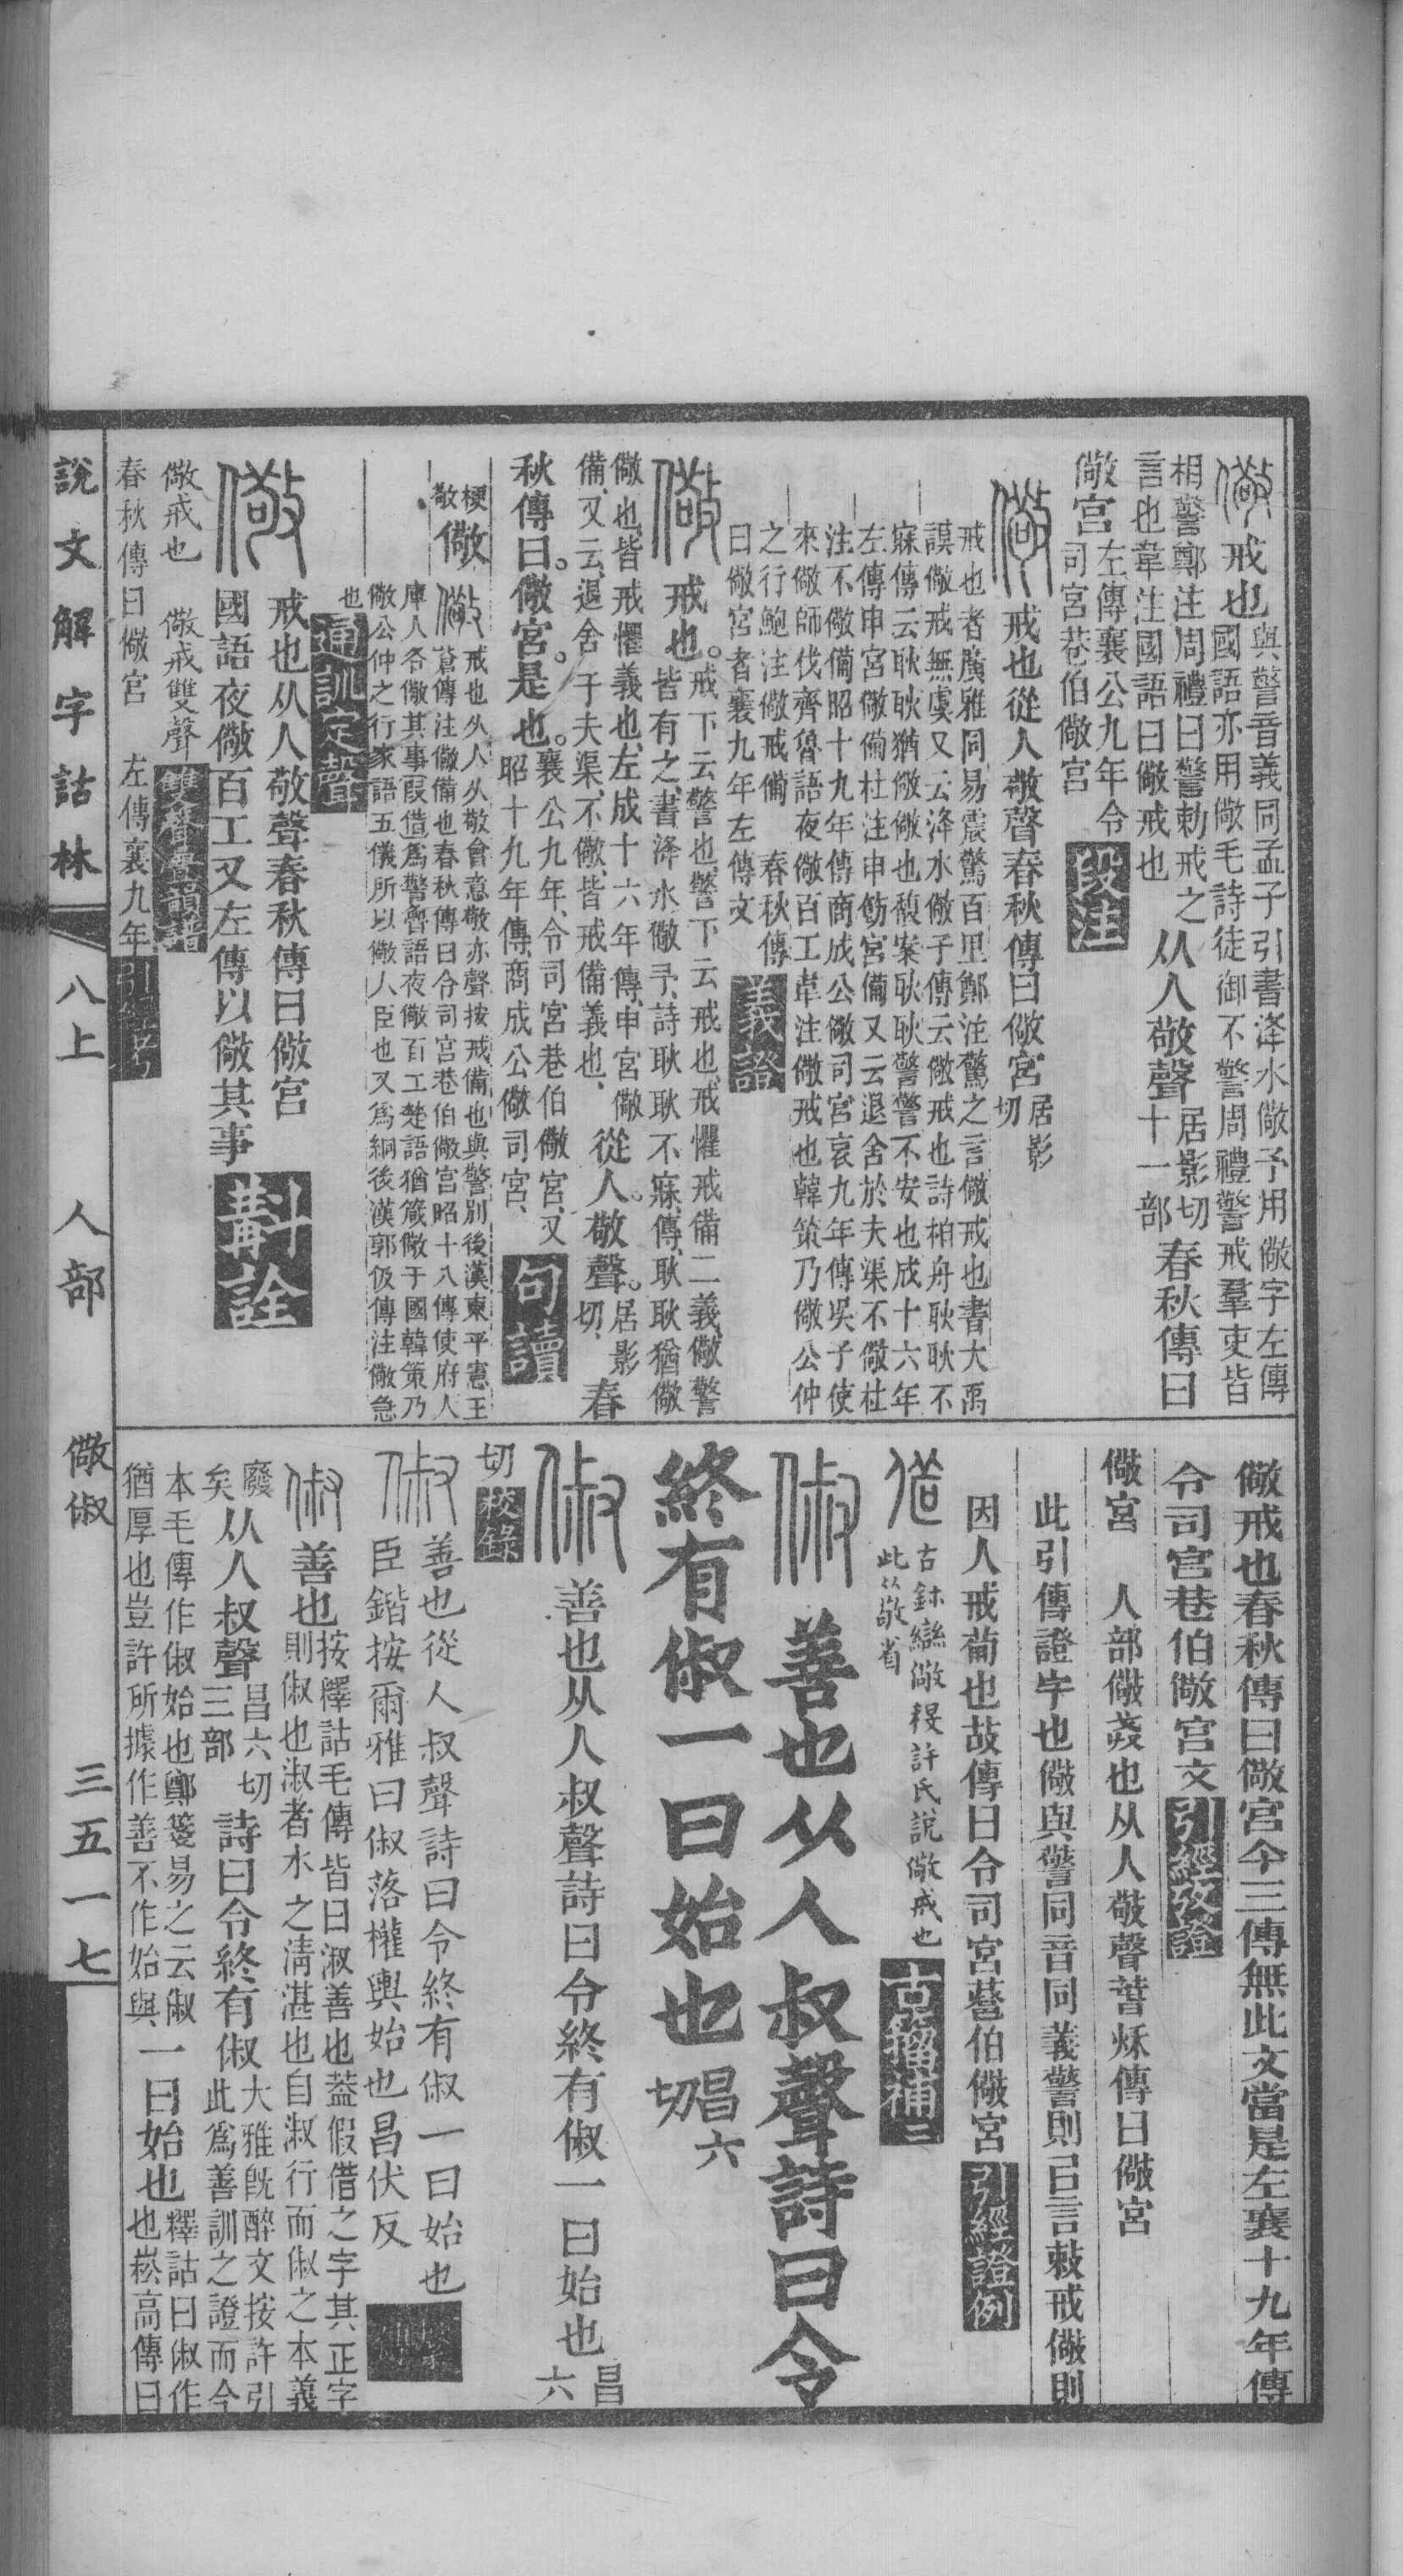 儆戒也與警音義同孟子引書洚水儆予用儆字左傳
國語亦用儆毛詩徒御不警周禮警戒羣吏皆
相警鄭注周禮曰警勅戒之
言也韋注國語曰儆戒也
从人敬聲居影切
十一部
春秋傳曰
儆宮左傳襄公九年令
司宮巷伯儆宮
段注
儆戒也從人敬聲春秋傳曰儆宮居影
切
戒也者廣雅同易震驚百里鄭注驚之言儆戒也書大禹
謨儆戒無虞又云洚水儆予傳云儆戒也詩柏舟耿耿不
寐傳云耿耿猶儆儆也馥案耿耿警警不安也成十六年
左傳申宮儆備杜注申勑宮備又云退舍於夫渠不儆杜
注不儆備昭十九年傳商成公儆司宮哀九年傳吳子使
來儆師伐齊魯語夜儆百工韋注儆戒也韓策乃儆公仲
之行鮑注儆戒備 春秋傳
曰儆宮者襄九年左傳文
義證
儆戒也。戒下云警也、警下云戒也、戒懼戒備二義、儆警
皆有之、書洚水儆予、詩耿耿不寐、傳、耿耿猶儆
儆也、皆戒懼義也、左成十六年傳、申宮儆
備、又云、退舍于夫渠、不儆、皆戒備義也、
從人。敬聲。居影
切、
春
秋傳曰。儆宮。是也。襄公九年、令司宮巷伯儆宮、又
昭十九年傳、商成公儆司宮、
句讀
梗
敬
儆
儆戒也从人从敬會意敬亦聲按戒備也與警別後漢東平憲王
蒼傳注儆備也春秋傳曰令司宮巷伯儆宮昭十八傳使府人
庫人各儆其事叚借爲警魯語夜儆百工楚語猶箴儆于國韓策乃
儆公仲之行家語五儀所以儆人臣也又爲絅後漢郭伋傳注儆急
也
通訓定聲
儆戒也从人敬聲春秋傳曰儆宮
國語夜儆百工又左傳以儆其事
斠詮
儆戒也 儆戒雙聲
雙聲疊韻譜
春秋傳曰儆宮 左傳襄九年
引經考
儆戒也春秋傳曰儆宮今三傳無此文當是左襄十九年傳
令司宮巷伯儆宮文
引經攷證
儆宮 人部儆戒也从人敬聲萅秌傳曰儆宮
此引傳證字也儆與警同音同義警則㠯言敕戒儆則
因人戒葡也故傳曰令司宮巷伯儆宮
引經證例
古鉨䜌儆稅許氏說儆戒也
此从敬省
古籀補補
俶善也从人叔聲詩曰令
終有俶一曰始也昌六
切
俶善也从人叔聲詩曰令終有俶一曰始也昌
六
切
校錄
俶善也從人叔聲詩曰令終有俶一曰始也
臣鍇按爾雅曰俶落權輿始也昌伏反
繫傳
俶善也按釋詁毛傳皆曰淑善也葢假借之字其正字
則俶也淑者水之淸湛也自淑行而俶之本義
廢
矣
从人叔聲昌六切
三部
詩曰令終有俶大雅旣醉文按許引
此爲善訓之證而今
本毛傳作俶始也鄭箋易之云俶
猶厚也豈許所據作善不作始與
一曰始也釋詁曰俶作
也崧高傳曰
說文解字詁林 八上 人部 儆俶 三五一七